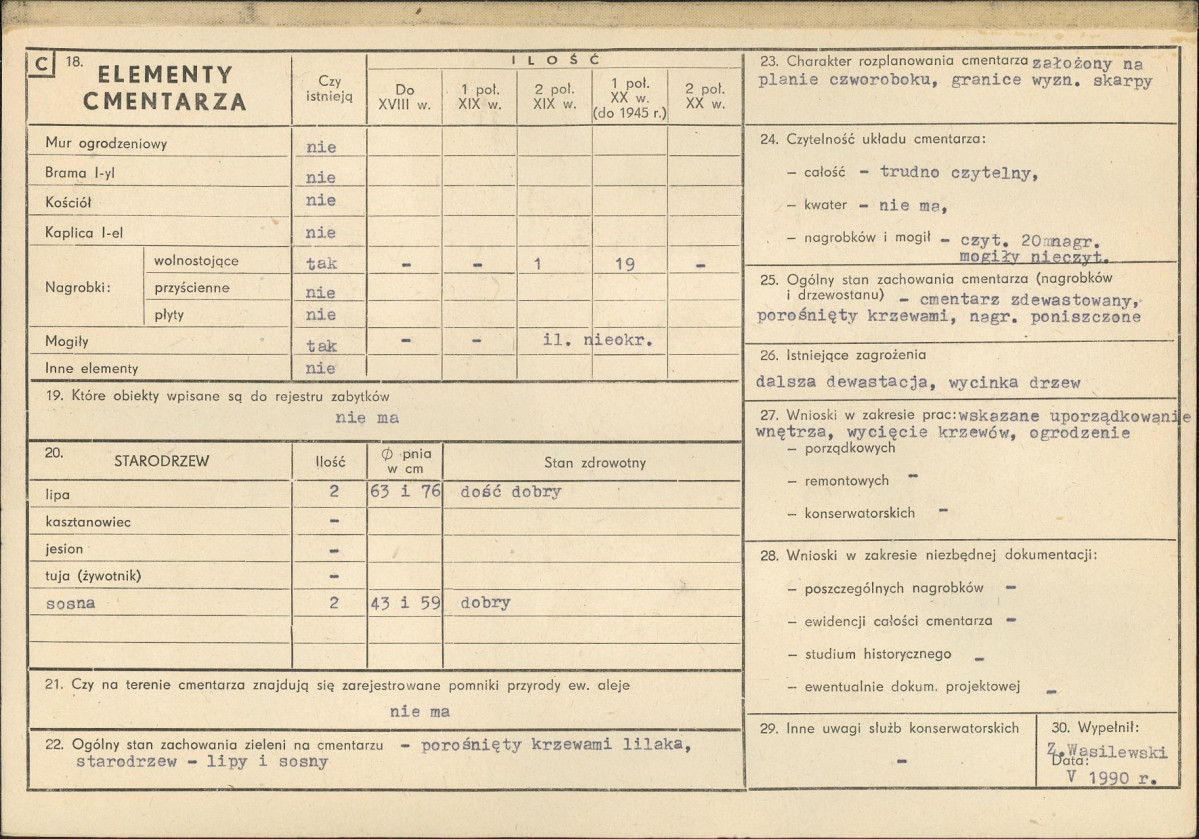 C 18. ELEMENTY CMENTARZA
Czy istnieją
ILOŚĆ
Do XVIII w.
1 poł. XIX w.
2 poł. XIX w.
1 poł. XX w. (do 1945 r.)
2 poł. XX w.
Mur ogrodzeniowy nie
Brama I-yl nie
Kościół nie
Kaplica I-el nie
Nagrobki:
wolnostojące tak - - 1 19 -
przyścienne nie
płyty nie
Mogiły tak - - il. nieokr.
Inne elementy nie
19. Które obiekty wpisane są do rejestru zabytków
nie ma
20. STARODRZEW Ilość Ø pnia w cm Stan zdrowotny
lipa 2 63 i 76 dość dobry
kasztanowiec -
jesion -
tuja (żywotnik) -
sosna 2 43 i 59 dobry
21. Czy na terenie cmentarza znajdują się zarejestrowane pomniki przyrody ew. aleje
nie ma
22. Ogólny stan zachowania zieleni na cmentarzu - porośnięty krzewami lilaka,
starodrzew - lipy i sosny
23. Charakter rozplanowania cmentarza założony na
planie czworoboku, granice wyzn. skarpy
24. Czytelność układu cmentarza:
– całość - trudno czytelny,
– kwater - nie ma,
– nagrobków i mogił - czyt. 20 nagr.
mogiły nieczyt.
25. Ogólny stan zachowania cmentarza (nagrobków
i drzewostanu) - cmentarz zdewastowany,
porośnięty krzewami, nagr. poniszczone
26. Istniejące zagrożenia
dalsza dewastacja, wycinka drzew
27. Wnioski w zakresie prac: wskazane uporządkowanie
wnętrza, wycięcie krzewów, ogrodzenie
– porządkowych
– remontowych -
– konserwatorskich -
28. Wnioski w zakresie niezbędnej dokumentacji:
– poszczególnych nagrobków -
– ewidencji całości cmentarza -
– studium historycznego -
– ewentualnie dokum. projektowej -
29. Inne uwagi służb konserwatorskich
-
30. Wypełnił:
Z.Wasilewski
Data:
V 1990 r.